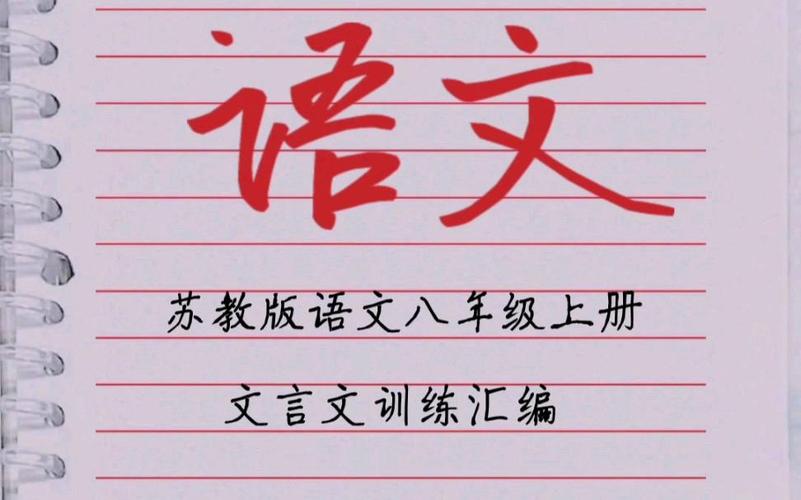 语文
苏教版语文八年级上册
文言文训练汇编